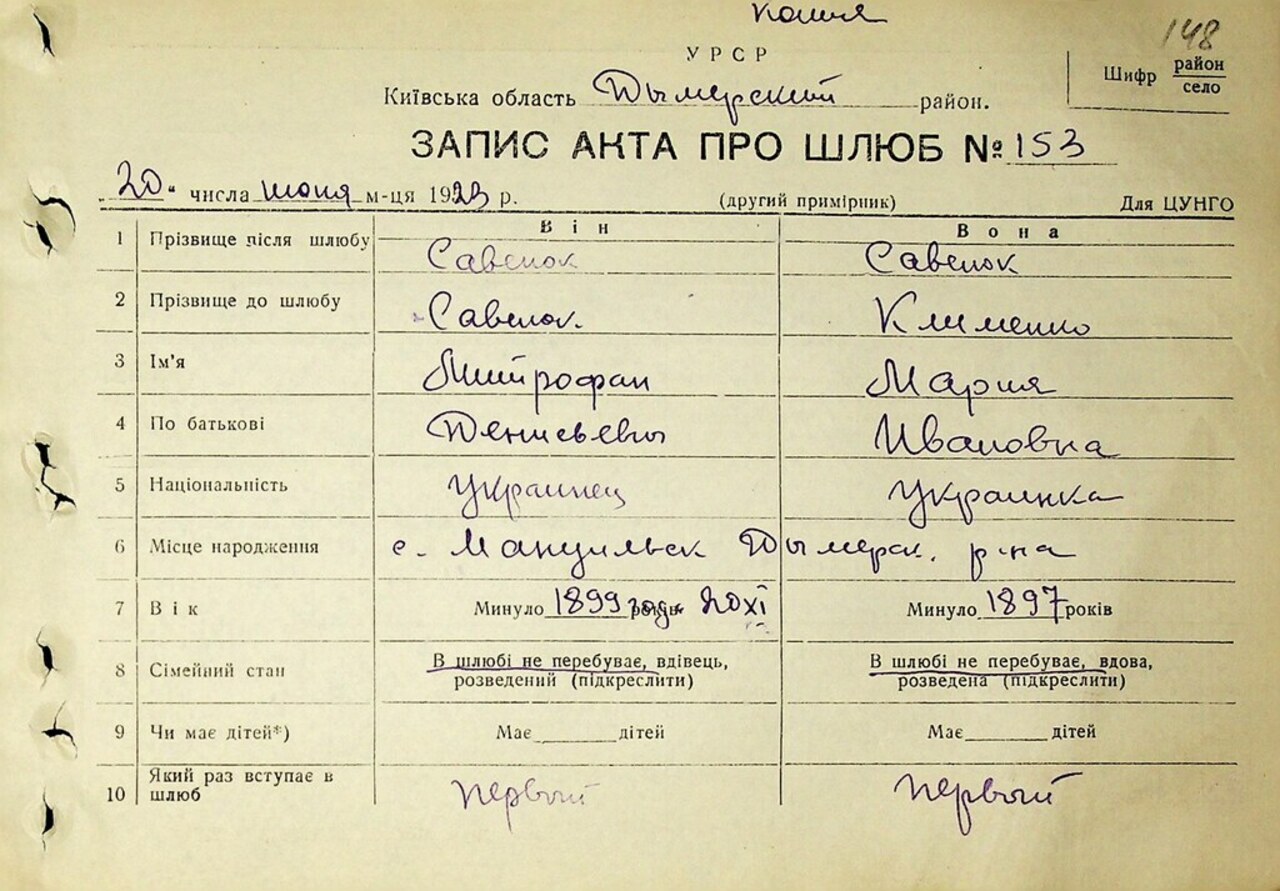 Копия
148
УРСР
Шифр район село
Київська область Дымерский район.
ЗАПИС АКТА ПРО ШЛЮБ № 153
„20" числа июня м-ця 1923 р. (другий примірник) Для ЦУНГО
Він Вона
1 Прізвище після шлюбу Савенок Савенок
2 Прізвище до шлюбу Савенок. Клименко
3 Ім'я Митрофан Мария
4 По батькові Денисьевич Ивановна
5 Національність Украинец Украинка
6 Місце народження с. Дымерск. р-на
7 Вік Минуло 1899 год. років 20 XI Минуло 1897 років
8 Сімейний стан В шлюбі не перебуває, вдівець, В шлюбі не перебуває, вдова,
розведений (підкреслити) розведена (підкреслити)
9 Чи має дітей*) Має дітей Має дітей
10 Який раз вступає в
шлюб первый первый